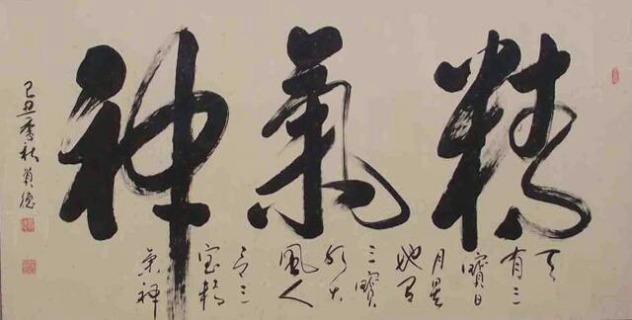 精氣神
天
有三
寶日
月星
地有
三寶
水火
風人
有三
寶精
氣神
己丑季秋